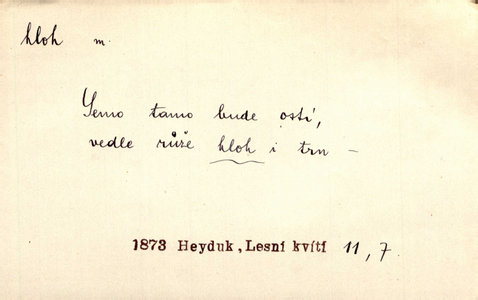 hloh m.
Semo tamo bude ostí,
vedle růže hloh i trn –
1873 Heyduk, Lesní kvítí 11, 7.